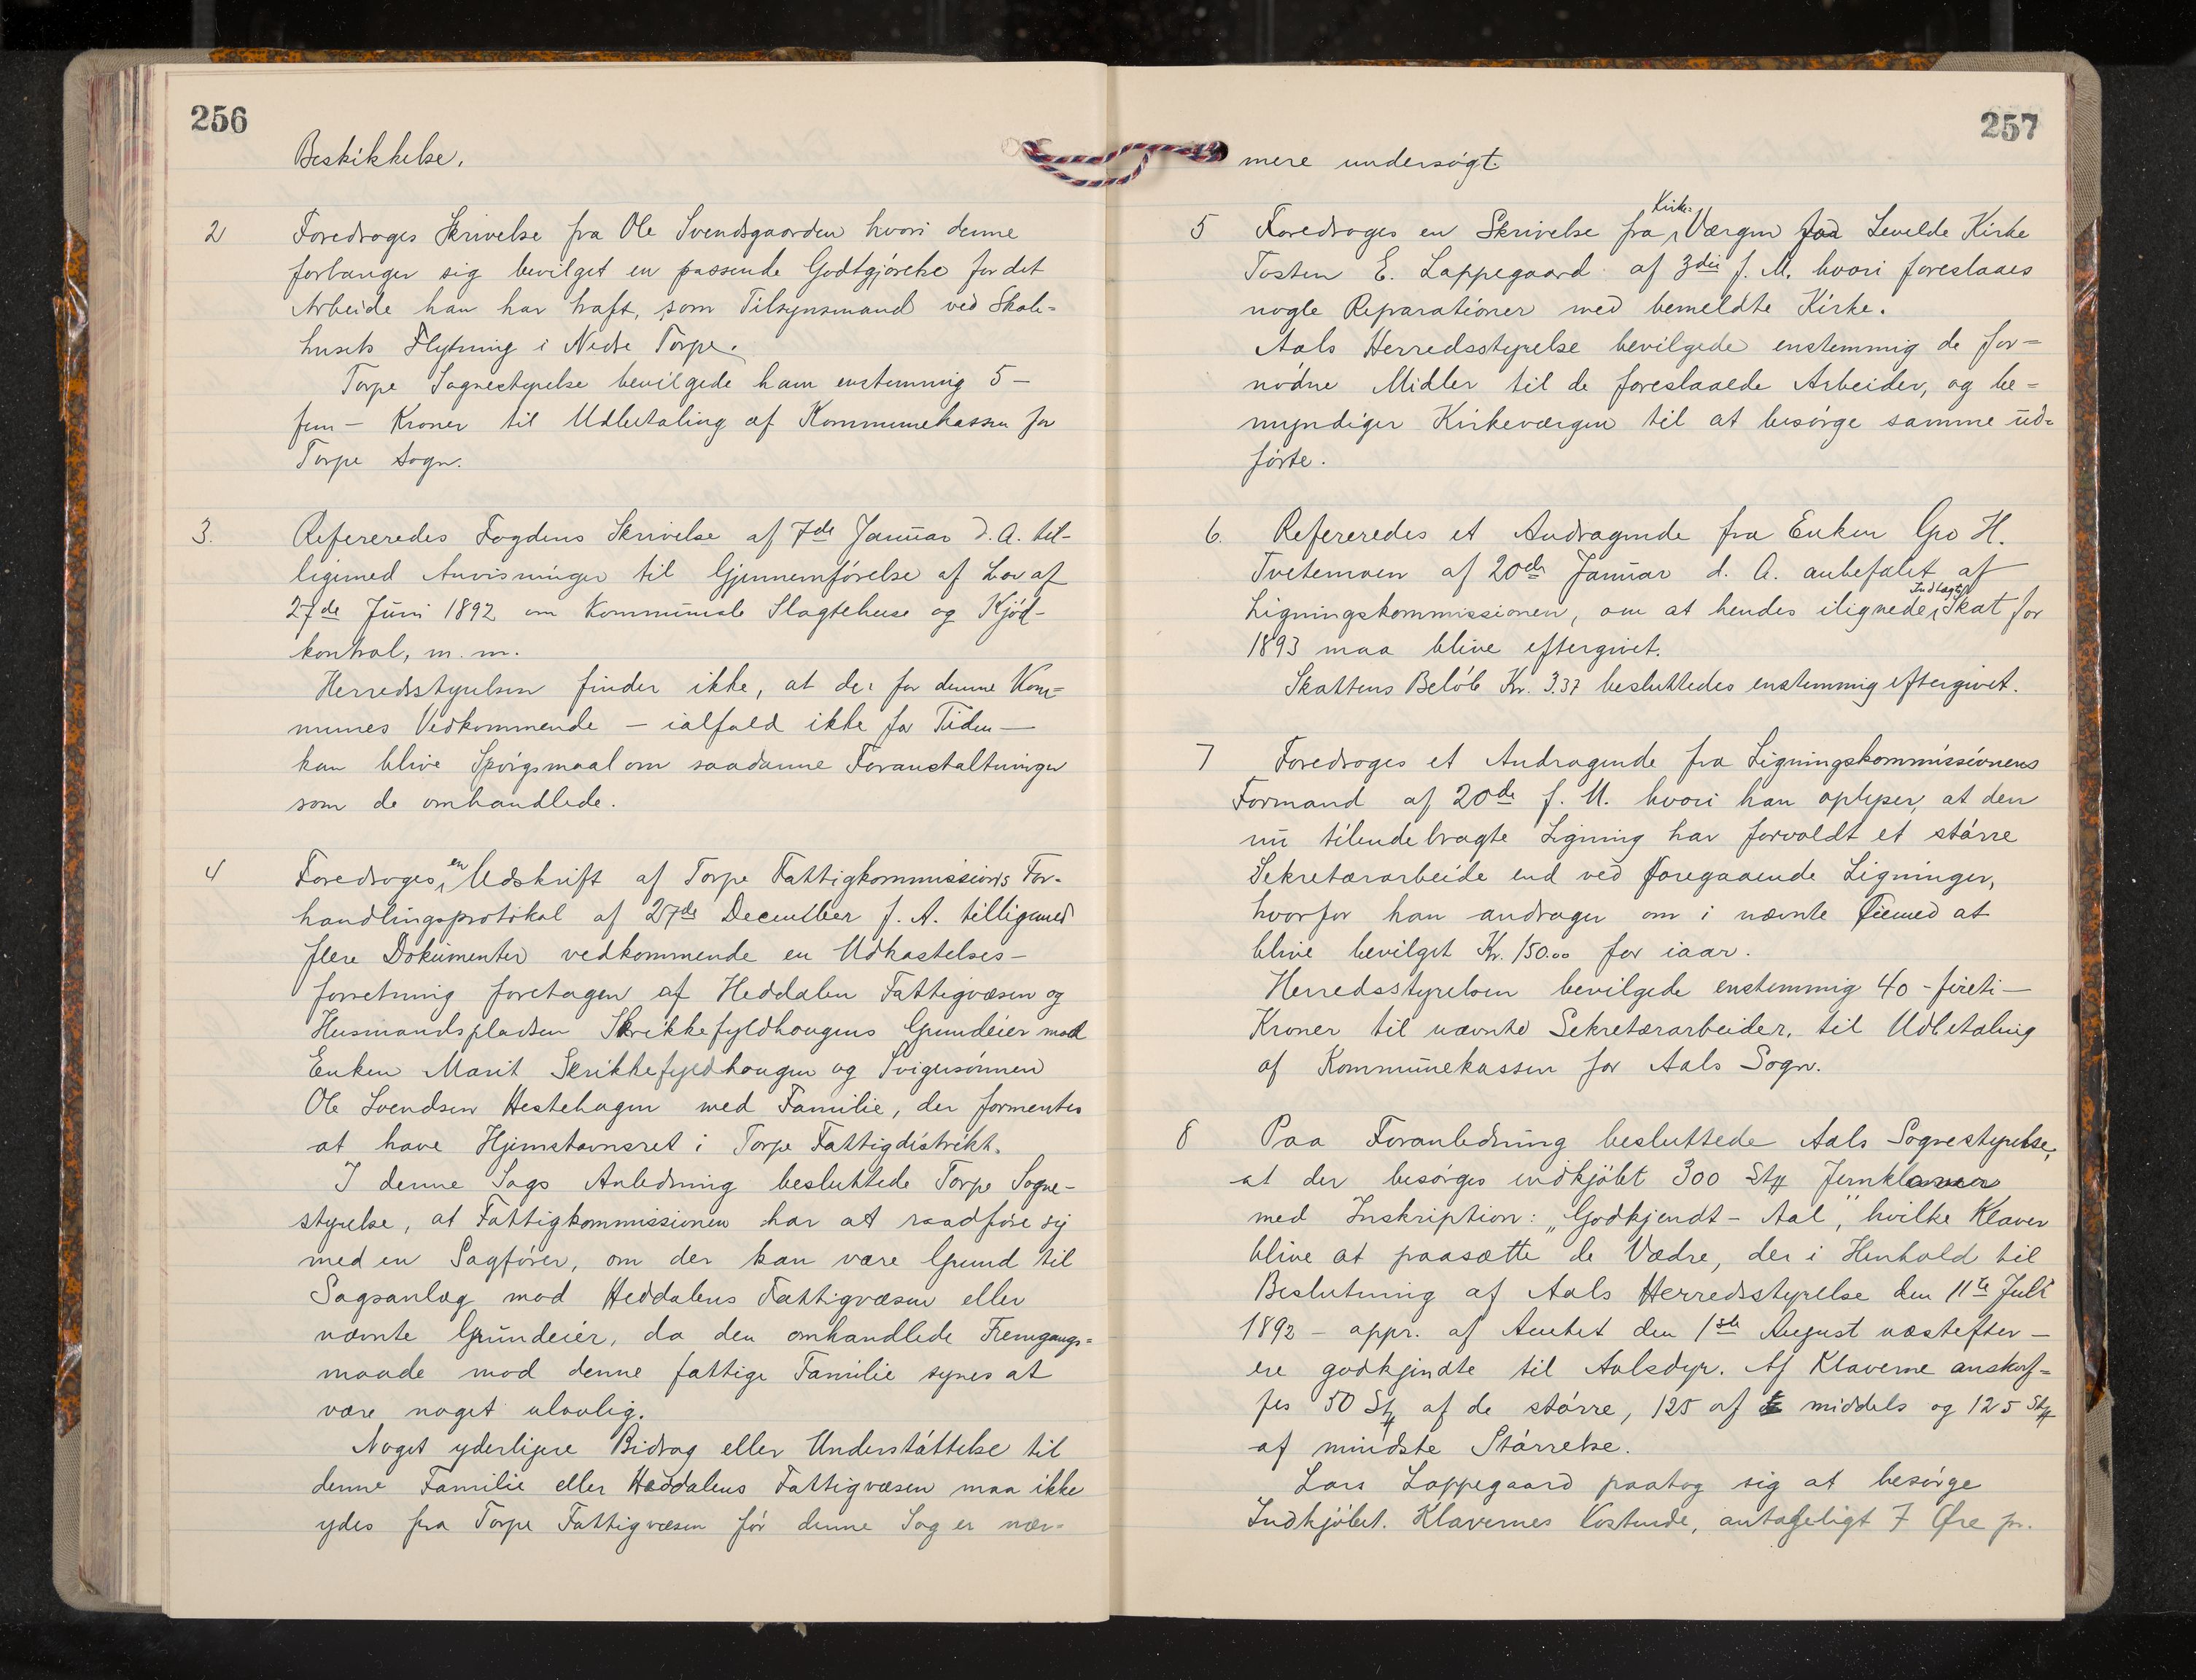 256
Beskikkelse.
2 Foredroges Skrivelse fra Ole Svendsgaarden hvori denne
forlanger sig bevilget en passende Godtgjörelse for det
Arbeide han har havt, som Tilsynsmand ved Skole-
husets Flytning i Nedre Torpe.
Torpe Sognestyrelse bevilgede ham enstemmig 5 –
fem – Kroner til Udbetaling af Kommunekassen for
Torpe Sogn.
3. Refereredes Fogdens Skrivelse af 7de Januar d. A. til-
ligemed Anvisninger til Gjennemförelse af Lov af
27de Juni 1892 om Kommunale Slagtehuse og Kjöd-
kontrol, m. m.
Herredsstyrelsen finder ikke, at der for denne Kom-
munes Vedkommende – ialfald ikke for Tiden –
kan blive Spörgsmaal om saadanne Foranstaltninger
som de omhandlede.
4 Foredroges en Udskrift af Torpe Fattigkommissions For-
handlingsprotokol af 27de December f. A. tilligemed
flere Dokumenter vedkommende en Udkastelses-
forretning foretagen af Heddalen Fattigvæsen og
Husmandspladsen Skrikkefyldhougens Grundeier mod
Enken Marit Skrikkefyldhougen og Svigersönnen
Ole Svendsen Hestehagen med Familie, der formentes
at have Hjemstavnsret i Torpe Fattigdistrikt.
I denne Sags Anledning besluttede Torpe Sogne-
styrelse, at Fattigkommissionen har at raadföre sig
med en Sagförer, om der kan være Grund til
Sagsanlæg mod Heddalens Fattigvæsen eller
nævnte Grundeier, da den omhandlede Fremgangs-
maade mod denne fattige Familie synes at
være noget ulovlig.
Noget yderligere Bidrag eller Understöttelse til
denne Familie eller Heddalens Fattigvæsen maa ikke
ydes fra Torpe Fattigvæsen för denne Sag er nær-
257
mere undersögt.
5 Foredroges en Skrivelse fra Kirke-Værgen for Levelde Kirke
Tosten E. Lappegaard af 3die f. M. hvori foreslaaes
nogle Reparationer med bemeldte Kirke.
Aals Herredsstyrelse bevilgede enstemmig de for-
nödne Midler til de foreslaaede Arbeider, og be-
myndiger Kirkeværgen til at besörge samme ud-
förte.
6. Refereredes et Andragende fra Enken Gro H.
Tvetemoen af 20de Januar d. A. anbefalet af
Ligningskommissionen, om at hendes ilignede Indtægts Skat for
1893 maa blive eftergivet.
Skattens Belöb Kr. 3.37 besluttedes enstemmig eftergivet.
7 Foredroges et Andragende fra Ligningskommissionens
Formand af 20de f. M. hvori han oplyser, at den
nu tilendebragte Ligning har forvoldt et större
Sekretærarbeide end ved foregaaende Ligninger,
hvorfor han andrager om i nævnte Øiemed at
blive bevilget Kr. 150.00 for iaar.
Herredsstyrelsen bevilgede enstemmig 40 - firti –
Kroner til nævnte Sekretærarbeider, til Udbetaling
af Kommunekassen for Aals Sogn.
8 Paa Foranledning besluttede Aals Sognestyrelse,
at der besörges indkjöbt 300 Stk Jernklaver
med Inskription: „Godkjendt - Aal", hvilke Klaver
blive at paasætte de Vædre, der i Henhold til
Beslutning af Aals Herredsstyrelse den 11te Juli
1892 – appr. af Amtet den 1ste August næstefter –
ere godkjendte til Avlsdyr. Af Klaverne anskaf-
fes 50 Stk af de större, 125 af middels og 125 Stk
af mindste Störrelse.
Lars Lappegaard paatog sig at besörge
Indkjöbet. Klavernes Kostende, antageligt 7 Øre pr.